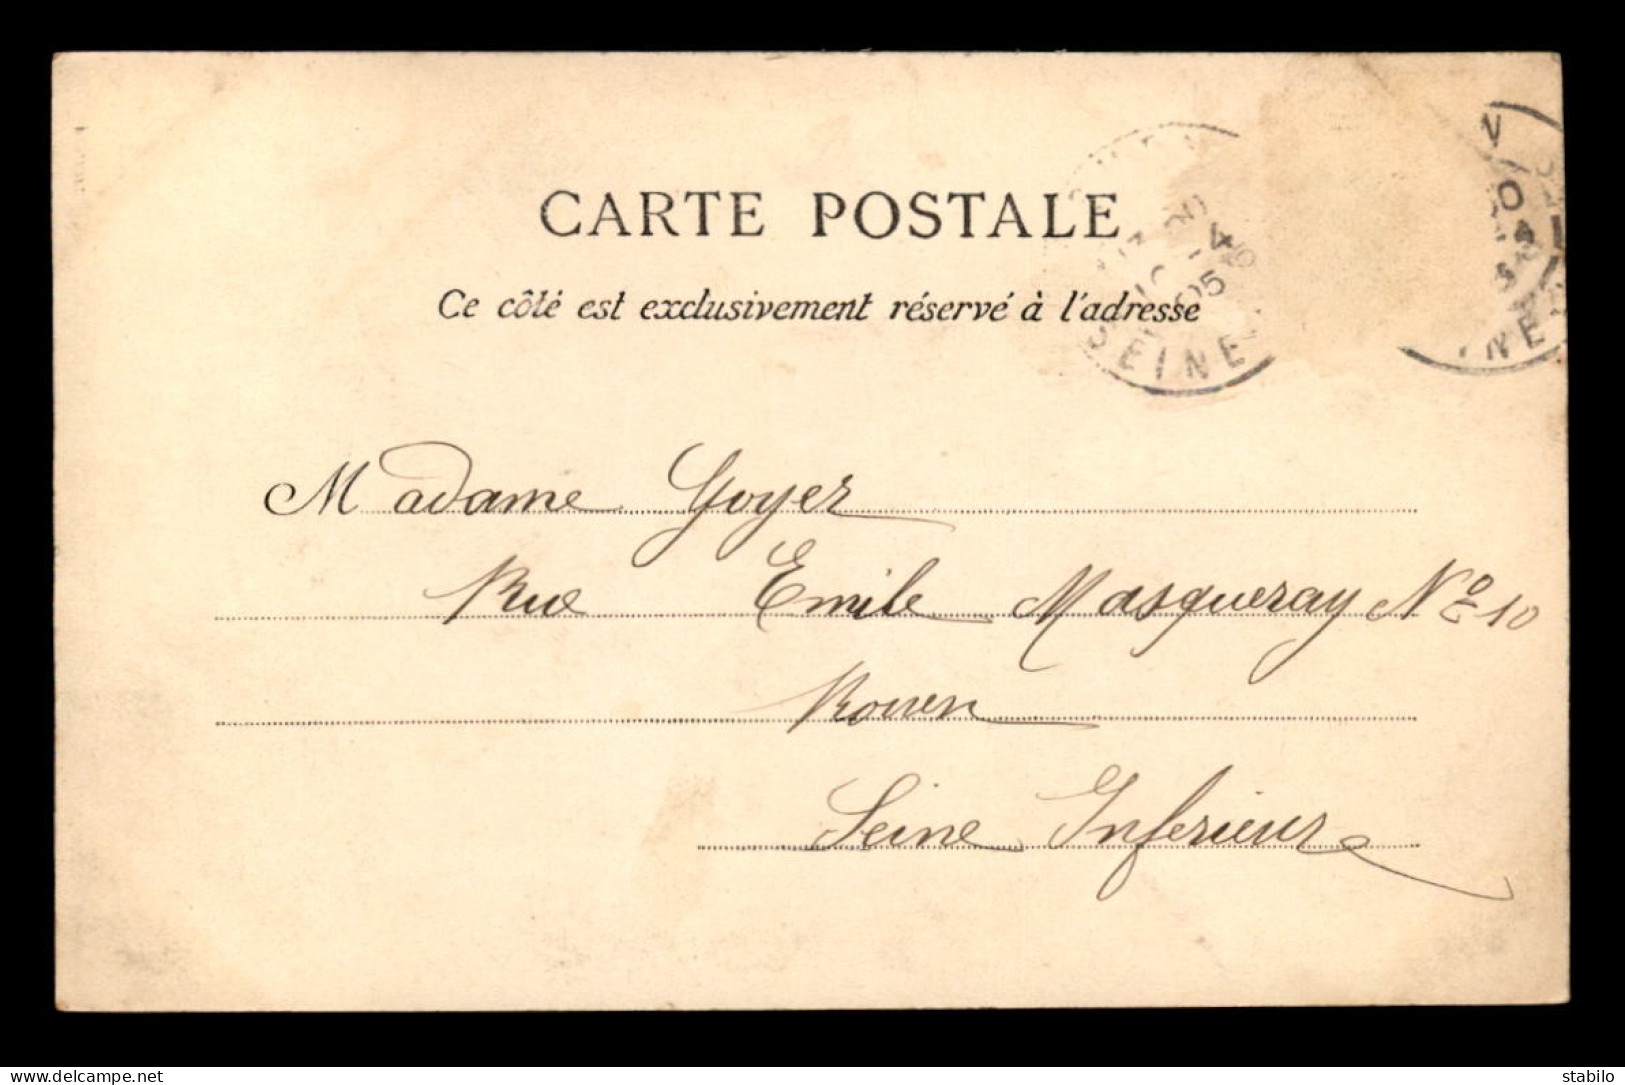 CARTE POSTALE
Ce côté est exclusivement réservé à l'adresse
4
05
EINE
N
INE
Madame Goyer
Rue Emile Masqueray No 10
Rouen
Seine Inferieure
Visit www.delcampe.net
stabilo